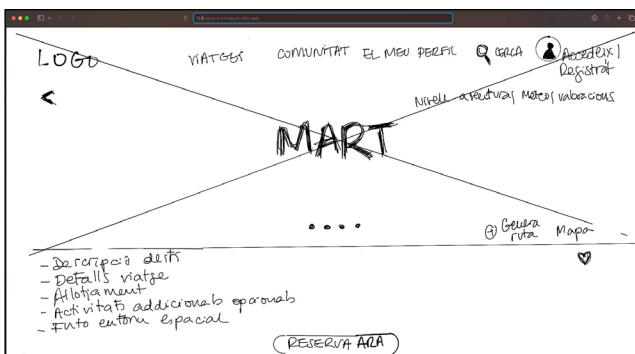 Buscar o introducir sitio web
LOGO VIATGES COMUNITAT EL MEU PERFIL CERCA Accedeix |
Registra't
Nivell aventura| Meteo| valoracions
MART
+ Genera Mapa
ruta
- Descripció destí
- Detalls viatge
- Allotjament
- Activitats addicionals opcionals
- Futo entorn espacial
RESERVA ARA